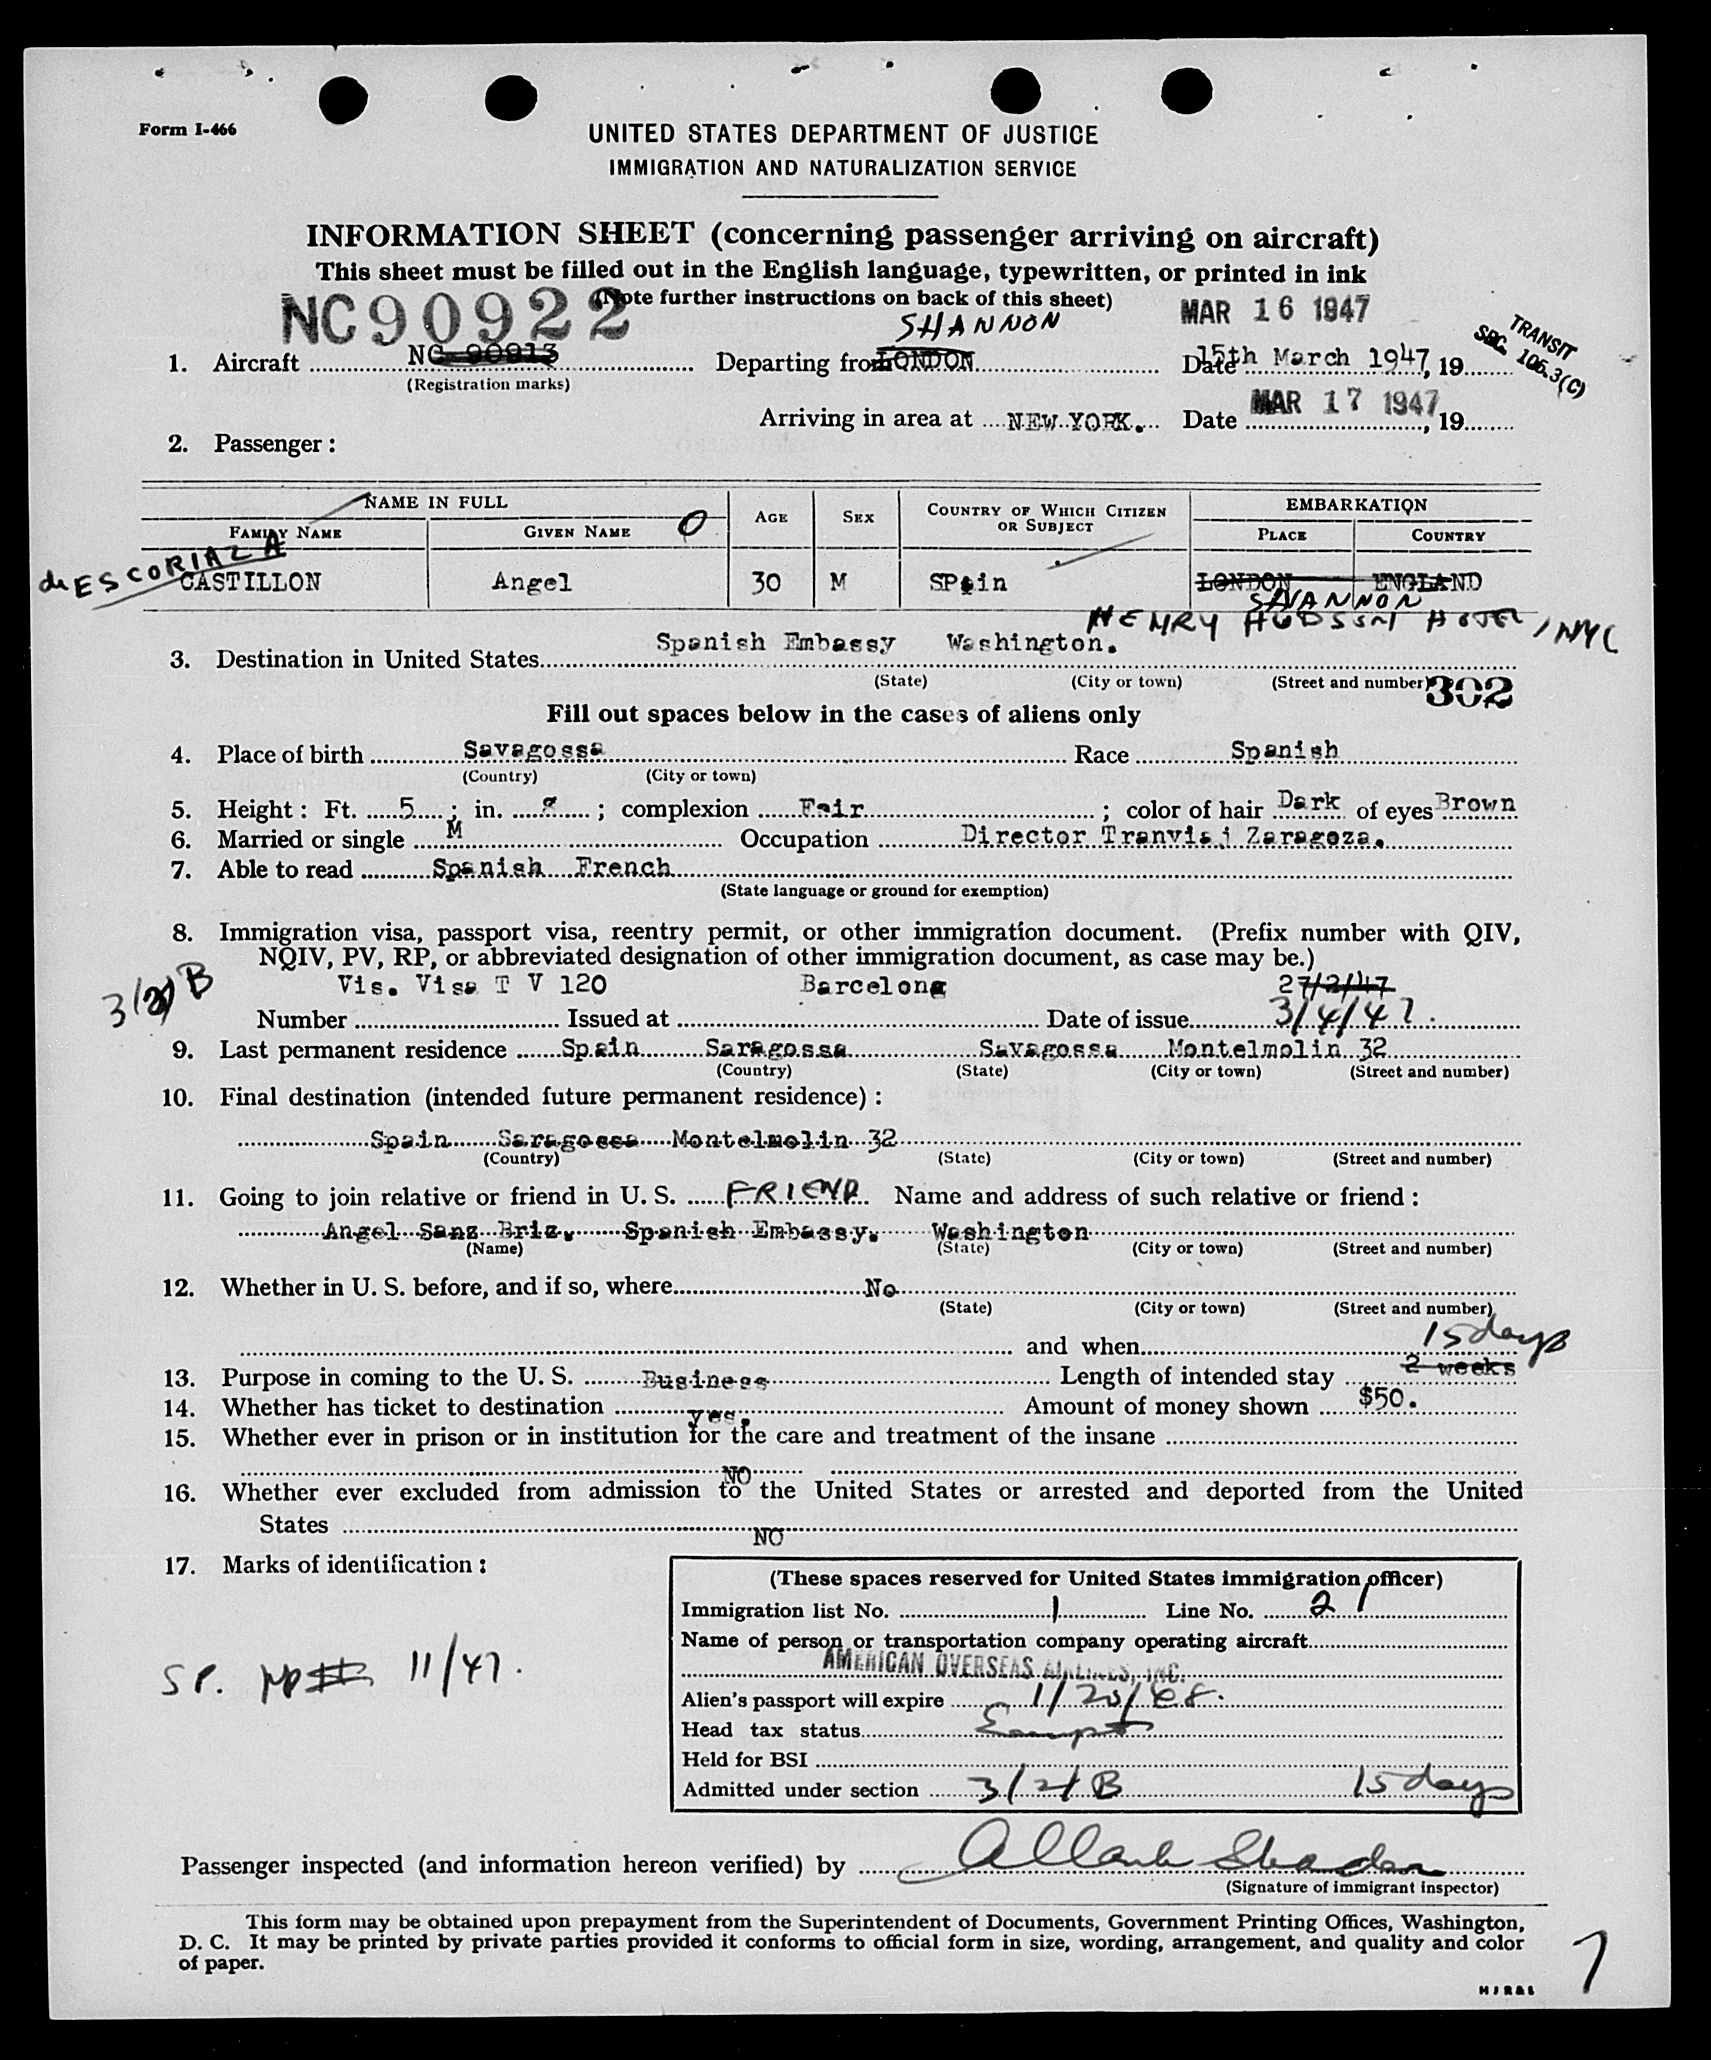 Form I-466
UNITED STATES DEPARTMENT OF JUSTICE
IMMIGRATION AND NATURALIZATION SERVICE
INFORMATION SHEET (concerning passenger arriving on aircraft)
This sheet must be filled out in the English language, typewritten, or printed in ink
(Note further instructions on back of this sheet)
NC90922
SHANNON
MAR 16 1947
TRANSIT
SEC. 105.3(C)
1. Aircraft NC 90913 Departing from LONDON Date 15th March 1947, 19
(Registration marks)
Arriving in area at NEW YORK. Date MAR 17 1947, 19
2. Passenger:
NAME IN FULL AGE SEX COUNTRY OF WHICH CITIZEN OR SUBJECT EMBARKATION
FAMILY NAME GIVEN NAME O PLACE COUNTRY
de ESCORIAZA
CASTILLON Angel 30 M SPain LONDON ENGLAND
SHANNON
HENRY HUDSON HOTEL, NYC
3. Destination in United States Spanish Embassy Washington.
(State) (City or town) (Street and number)
302
Fill out spaces below in the cases of aliens only
4. Place of birth Savagossa Race Spanish
(Country) (City or town)
5. Height: Ft. 5; in. 8; complexion Fair; color of hair Dark of eyes Brown
6. Married or single M Occupation Director Tranvias j Zaragoza.
7. Able to read Spanish French
(State language or ground for exemption)
8. Immigration visa, passport visa, reentry permit, or other immigration document. (Prefix number with QIV,
NQIV, PV, RP, or abbreviated designation of other immigration document, as case may be.)
3/2/B
Vis. Visa T V 120 Barcelona 27/2/47
Number Issued at Date of issue 3/4/47.
9. Last permanent residence Spain Saragossa Savagossa Montelmolin 32
(Country) (State) (City or town) (Street and number)
10. Final destination (intended future permanent residence):
Spain Saragossa Montelmolin 32
(Country) (State) (City or town) (Street and number)
11. Going to join relative or friend in U. S. FRIEND Name and address of such relative or friend:
Angel Sanz Briz, Spanish Embassy, Washington
(Name) (State) (City or town) (Street and number)
12. Whether in U. S. before, and if so, where No
(State) (City or town) (Street and number)
and when
15 days
13. Purpose in coming to the U. S. Business Length of intended stay 2 weeks
14. Whether has ticket to destination yes. Amount of money shown $50.
15. Whether ever in prison or in institution for the care and treatment of the insane
NO
16. Whether ever excluded from admission to the United States or arrested and deported from the United
States NO
17. Marks of identification:
(These spaces reserved for United States immigration officer)
Immigration list No. 1 Line No. 21
Name of person or transportation company operating aircraft
AMERICAN OVERSEAS AIRLINES, INC.
SP. 11/47.
Alien's passport will expire 1/20/48.
Head tax status Exempt
Held for BSI
Admitted under section 3/2/B 15 days
Passenger inspected (and information hereon verified) by
(Signature of immigrant inspector)
This form may be obtained upon prepayment from the Superintendent of Documents, Government Printing Offices, Washington,
D. C. It may be printed by private parties provided it conforms to official form in size, wording, arrangement, and quality and color
of paper.
7